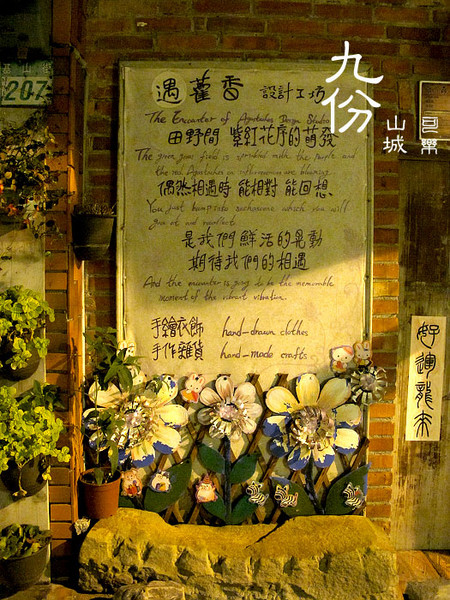 九份
山城
207
遇藿香 設計工坊
The Encounter of Agastaches Design Studio
田野間 紫紅花序的萌發
The green grass field is sprinkled with the purple and
the red Agastaches in inflorescence are blooming.
偶然相遇時 能相對 能回想.
You just bump into such scene which you will
是我們鮮活的晃動
期待我們的相遇
And the encounter is going to be the memorable
moment of the vibrant vibration.
手繪衣飾 hand-drawn clothes
手作雜貨 hand-made crafts
好運龍來